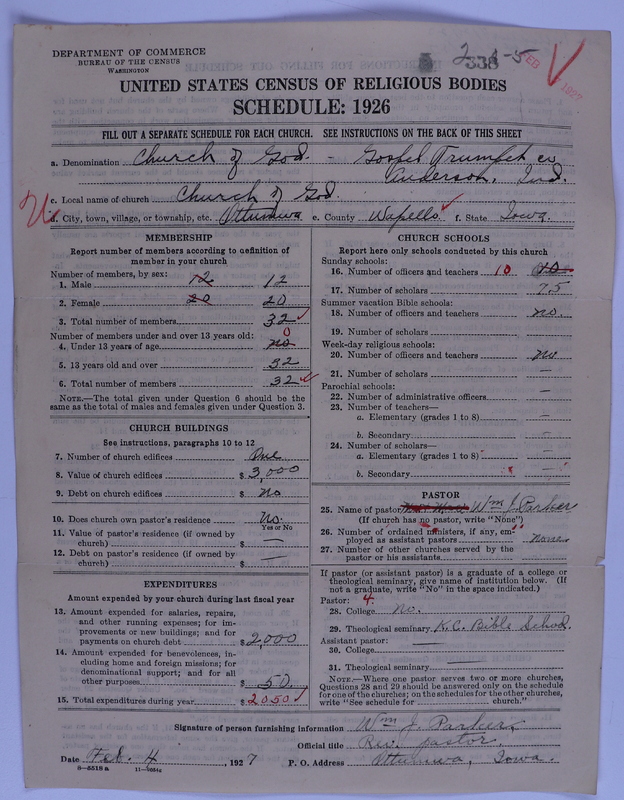 DEPARTMENT OF COMMERCE
BUREAU OF THE CENSUS
WASHINGTON
FEB 1927
UNITED STATES CENSUS OF RELIGIOUS BODIES
SCHEDULE: 1926
FILL OUT A SEPARATE SCHEDULE FOR EACH CHURCH. SEE INSTRUCTIONS ON THE BACK OF THIS SHEET
a. Denomination Church of God - Gospel Trumpet co
Anderson, Ind.
c. Local name of church Church of God.
d. City, town, village, or township, etc. Ottumwa e. County Wapello f. State Iowa.
MEMBERSHIP
Report number of members according to definition of
member in your church
Number of members, by sex:
1. Male 12 12
2. Female 20 20
3. Total number of members 32
Number of members under and over 13 years old:
4. Under 13 years of age no 0
5. 13 years old and over 32
6. Total number of members 32
NOTE.—The total given under Question 6 should be
the same as the total of males and females given under Question 3.
CHURCH BUILDINGS
See instructions, paragraphs 10 to 12
7. Number of church edifices One
8. Value of church edifices $ 3,000
9. Debt on church edifices $ no
10. Does church own pastor's residence No.
Yes or No
11. Value of pastor's residence (if owned by
church) $ —
12. Debt on pastor's residence (if owned by
church) $ —
EXPENDITURES
Amount expended by your church during last fiscal year
13. Amount expended for salaries, repairs,
and other running expenses; for im-
provements or new buildings; and for
payments on church debt $ 2,000
14. Amount expended for benevolences, in-
cluding home and foreign missions; for
denominational support; and for all
other purposes $ 50.
15. Total expenditures during year $ 2050
CHURCH SCHOOLS
Report here only schools conducted by this church
Sunday schools:
16. Number of officers and teachers 10
17. Number of scholars 75
Summer vacation Bible schools:
18. Number of officers and teachers no.
19. Number of scholars —
Week-day religious schools:
20. Number of officers and teachers no
21. Number of scholars —
Parochial schools:
22. Number of administrative officers —
23. Number of teachers—
a. Elementary (grades 1 to 8) —
b. Secondary —
24. Number of scholars—
a. Elementary (grades 1 to 8) —
b. Secondary —
PASTOR
25. Name of pastor Wm J. Parker
(If church has no pastor, write "None")
26. Number of ordained ministers, if any, em-
ployed as assistant pastors none.
27. Number of other churches served by the
pastor or his assistants
If pastor (or assistant pastor) is a graduate of a college or
theological seminary, give name of institution below. (If
not a graduate, write "No" in the space indicated.)
Pastor: 4
28. College No.
29. Theological seminary K.C. Bible School.
Assistant pastor: —
30. College
31. Theological seminary —
NOTE.—Where one pastor serves two or more churches,
Questions 28 and 29 should be answered only on the schedule
for one of the churches; on the schedules for the other churches,
write "See schedule for church."
Signature of person furnishing information Wm J. Parker,
Official title Rev. pastor.
Date Feb. 4, 1927 P. O. Address Ottumwa, Iowa.
8-5518 a